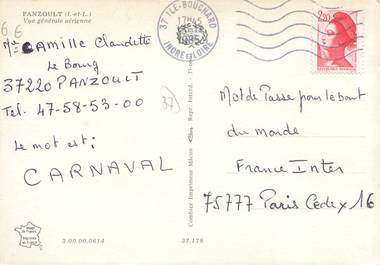 PANZOULT (I.-et-L.)
Vue générale aérienne
6 €
Mme CAMILLE Claudette
Le Bourg
37220 PANZOULT
Tel. 47-58-53-00
Le mot est:
CARNAVAL
37
37 ILE-BOUCHARD
17H
INDRE ET LOIRE
2,20
Mot de Passe pour le bout
du monde
France Inter
75777 Paris Cedex 16
Combier Imprimeur Mâcon
3.00.00.0614
37.178